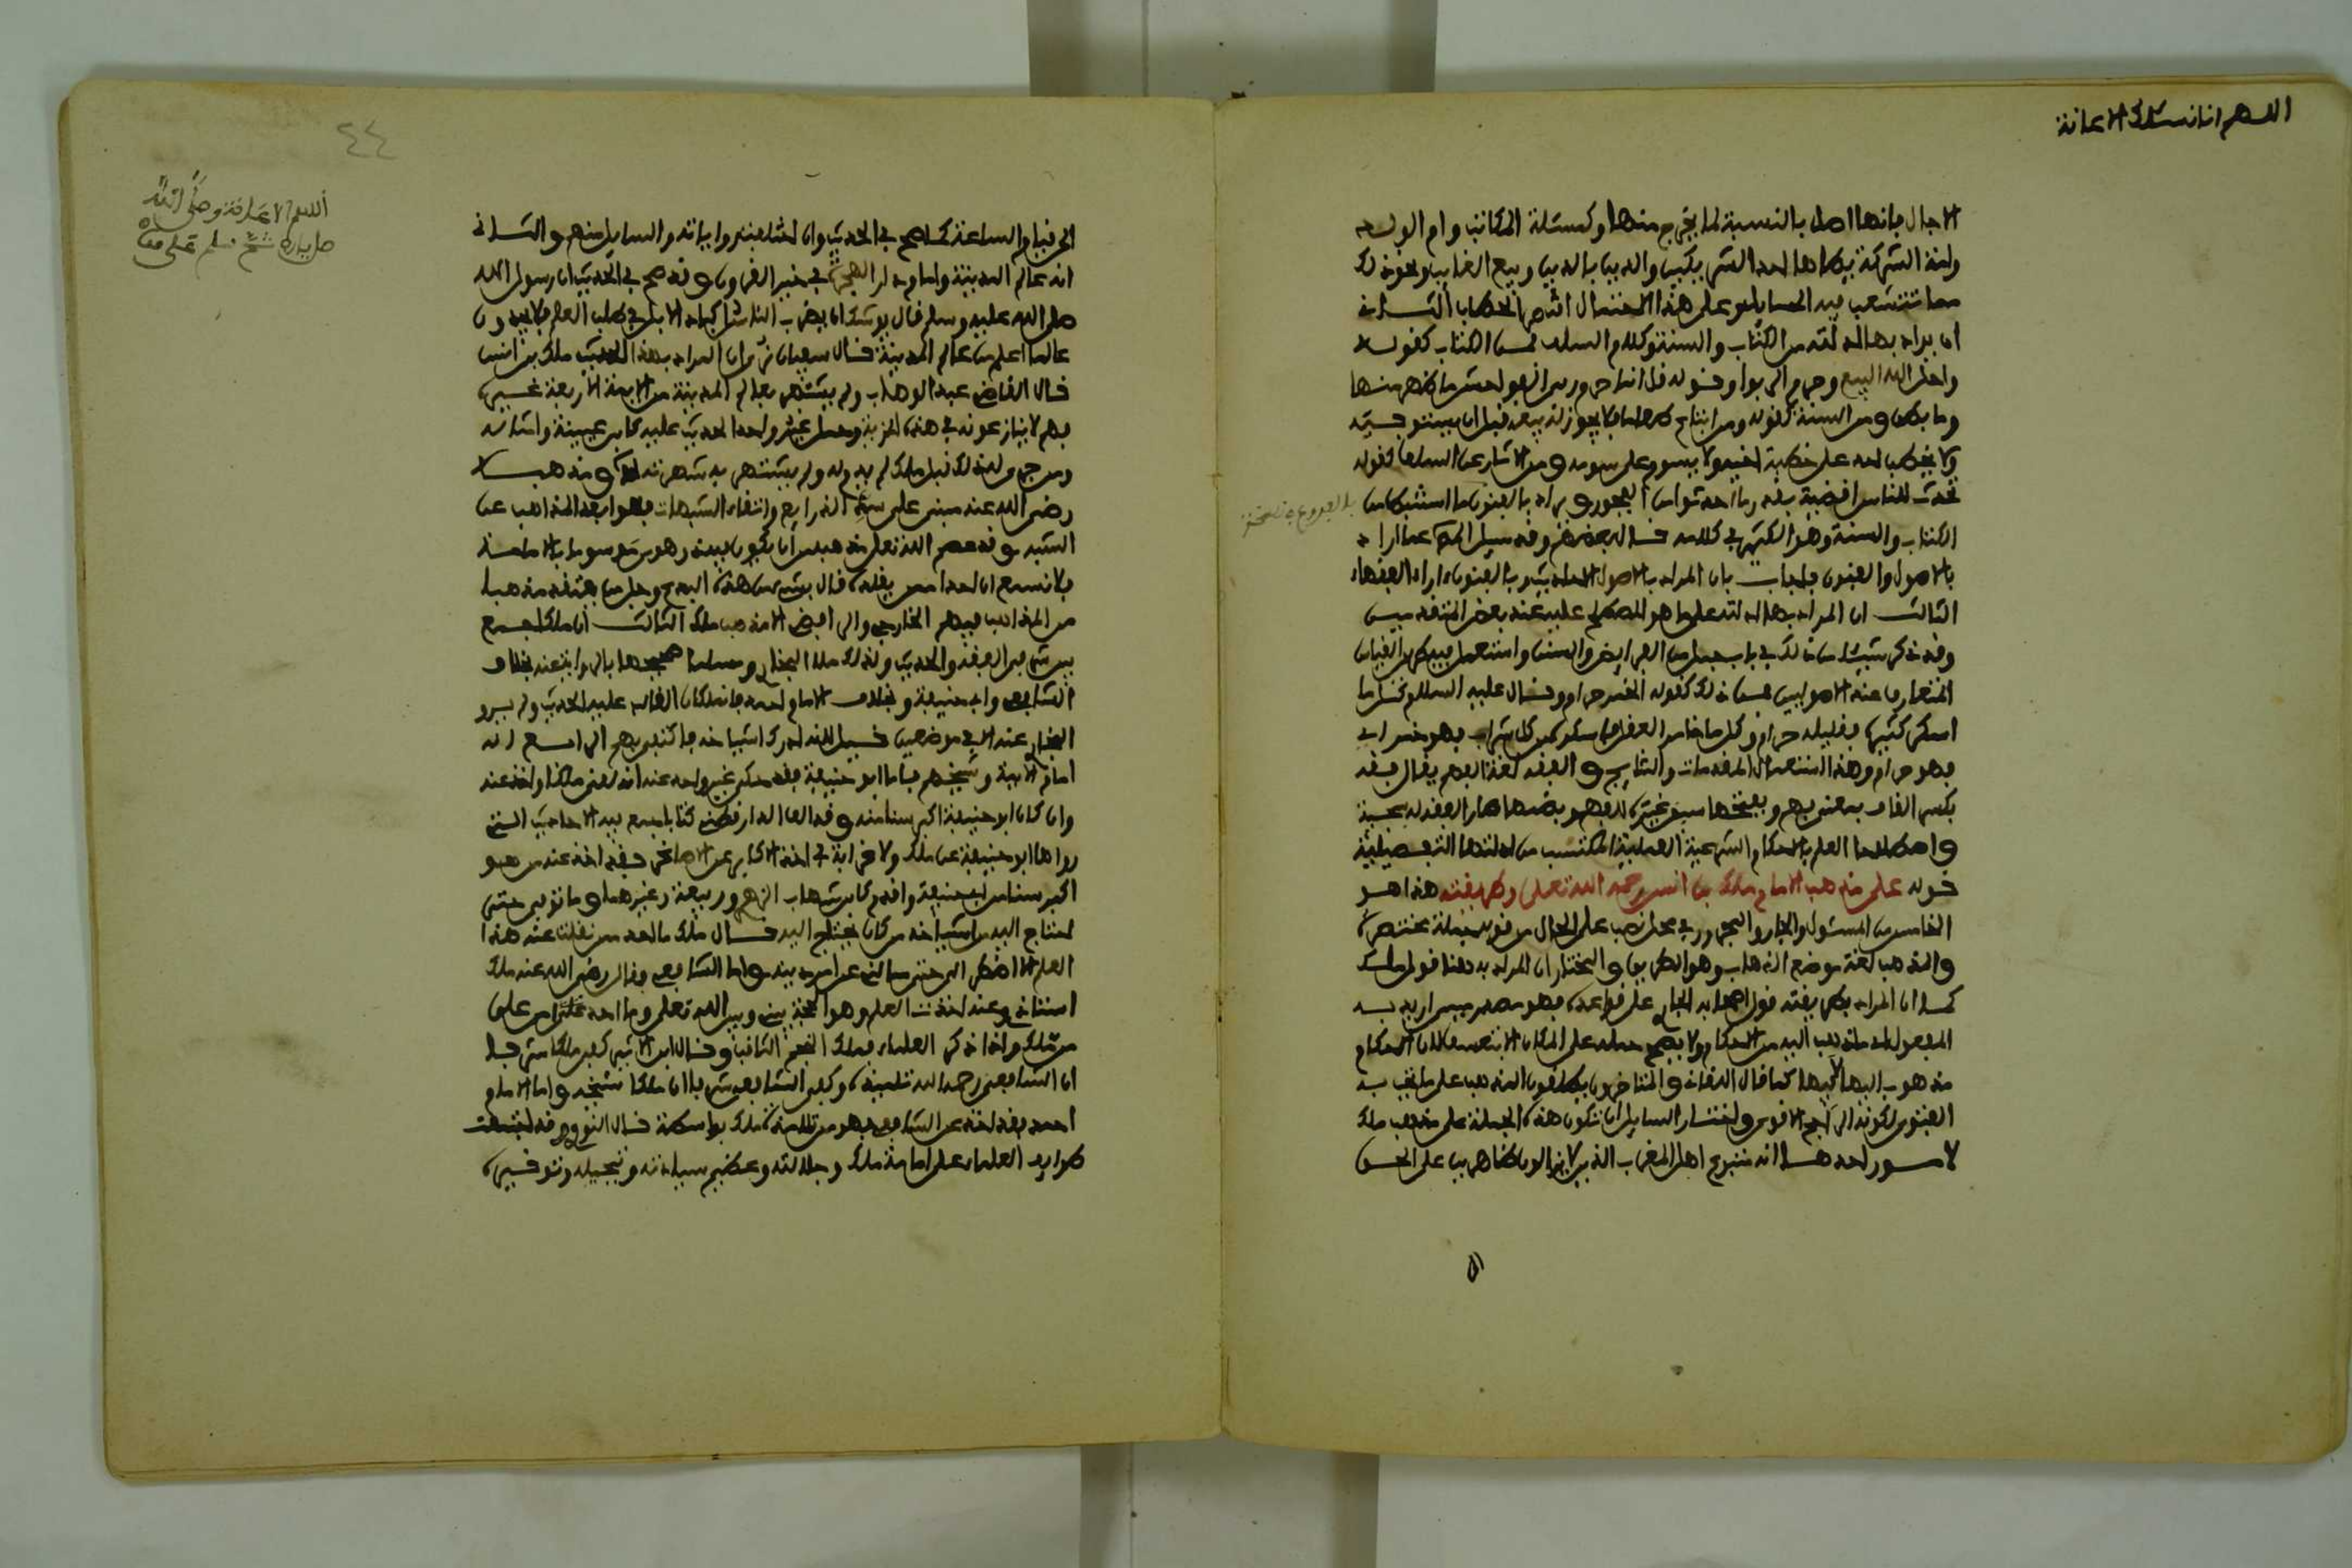 اللهم انا نسئلك الاعانة
الاجال فانها اصل بالنسبة لما يخرج منها وكمسئلة المكاتب وام الولد
ولذ الشركة يطاها احد الشريكين والدين بالدين وبيع الغايب ونحو ذلك
مما تتشعب فيه المسايل وعلى هذا الاحتمال اقتصر الحطاب الثاني
ان يراد بها الادلة من الكتاب والسنة وكلام السلف فمن الكتاب كقوله
واحل الله البيع وحرم الربوا وقوله قل انما حرم ربي الفواحش ما ظهر منها
وما بطن ومن السنة كقوله ومن ابتاع طعاما فلا يجوز له بيعه قبل ان يستوفيه
ولا يخطب احد على خطبة اخيه ولا يسوم على سومه ومن الاثار عن السلف كقوله
تحدث للناس اقضية بقدر ما احدثوا من الفجور ويراد بالفنون ما استنبط من
الكتاب والسنة وهو الكثير في كلامه قال بعضهم وقد سيل المص عما اراد
بالاصول والفنون فاجاب بان المراد بالاصول الاحاديث وبالفنون اراء الفقهاء
الثالث ان المراد بها الادلة على ما هو المصطلح عليه عند بعض المتقدمين
وقد ذكر شيئا من ذلك في باب جمل من الفرايض والسنن واستعمل فيه طريق القياس
المتعارف عند الاصوليين فمن ذلك كقوله الخمر حرام وقال عليه السلام كل ما
اسكر كثيره فقليله حرام وكل ما خامر العقل فاسكره من كل شراب فهو خمر اي
فهو حرام وهذا استعمال المقدمات والنتايج والفقه لغة الفهم يقال فقه
بكسر القاف بمعنى فهم وبفتحها سبق غيره للفهم وبضمها صار الفقه له سجية
واصطلاحا العلم بالاحكام الشرعية العملية المكتسب من ادلتها التفصيلية
قوله على مذهب الامام ملك بن انس رحمه الله تعلى وطريقته هذا هو
الخامس من المسئول والجار والمجرور في محل نصب على الحال من قوله جملة مختصرة
والمذهب لغة موضع الذهاب وهو الطريق والمختار ان المراد به هنا قول ملك
كما ان المراد بطريقته قول اصحابه الجاري على قواعده فهو مصدر ميمي اريد به
المفعول اي ما ذهب اليه من الاحكام ولا يصح حمله على المكان الا بتعسف لان الاحكام
مذهوب اليها لا فيها كما قال اللقاني والمتاخرون يطلقون المذهب على ما تجب به
الفتوى لكونه الراجح الاقوى واختار السايل ان تكون هذه الجملة على مذهب ملك
لامور احدها انه متبوع اهل المغرب الذين لا يزالون ظاهرين على الحق
٤٤
الى قيام الساعة كما صح في الحديث وان اختلفت رواياته والسايل منهم والثاني
انه عالم المدينة وامام دار الهجرة في خير القرون وقد صح في الحديث ان رسول الله
صلى الله عليه وسلم قال يوشك ان يضرب الناس اكباد الابل في طلب العلم فلا يجدون
عالما اعلم من عالم المدينة قال سفيان نرى ان المراد بهذا الحديث ملك بن انس
قال القاضي عبد الوهاب ولم يشتهر بعالم المدينة من الايمة الاربعة غيره
فهم لا ينازعونه في هذه المزية وحمل غير واحد الحديث عليه كابن عيينة وامثاله
ومن جمع له ذلك قبل ملك لم يدم له ولم يشتهر به شهرته ومذهبه
رضي الله عنه مبني على سد الذرايع واتقاء الشبهات فهو ابعد المذاهب عن
الشبه وقد عصم الله تعلى مذهبه من ان يكون فيه
فلا نسمع ان احدا ممن يقلده قال بشيء من هذه البدع وجل من يعتقد مذهبا
من المذاهب فيهم الخارجي والرافضي الا مذهب ملك الثالث ان ملكا جمع
بين شرفي الفقه والحديث ولذلك ملا البخاري ومسلم صحيحهما بالرواية عنه بخلاف
الشافعي وابي حنيفة وبخلاف الامام احمد فانه كان الغالب عليه الحديث ولم يرو
البخاري عنه الا في موضعين قيل لانه ادرك اشياخه فاكتفى بهم الرابع انه
امام الايمة وشيخهم فاما ابو حنيفة فقد حكى غير واحد عنه انه لقي ملكا واخذ عنه
وان كان ابو حنيفة اكبر سنا منه وقد الف الدارقطني كتابا جمع فيه الاحاديث التي
رواها ابو حنيفة عن ملك ولا غرابة في اخذ الاكابر عن الاصاغر فقد اخذ عنه من هو
اكبر سنا من ابي حنيفة واقدم كابن شهاب الزهري وربيعة وغيرهما وما توفي حتى
احتاج اليه من اشياخه من كان يحتاج اليه قال ملك ما احد ممن نقلت عنه هذا
العلم الا اضطر الي حتى سالني عن امر دينه واما الشافعي وقال رضي الله عنه ملك
استاذي وعنه اخذت العلم وهو الحجة بيني وبين الله تعلى وما احد امن علي
من ملك واذا ذكر العلماء فملك النجم الثاقب وقال ابن الاثير كفى ملكا شرفا
ان الشافعي رحمه الله تلميذه وكفى الشافعي شرفا ان ملكا شيخه واما الامام
احمد فقد اخذ عن الشافعي فهو من تلاميذ ملك بواسطة قال النووي وقد اجتمعت
طوايف العلماء على امامة ملك وجلالته وعظيم سيادته وتبجيله وتوقيره